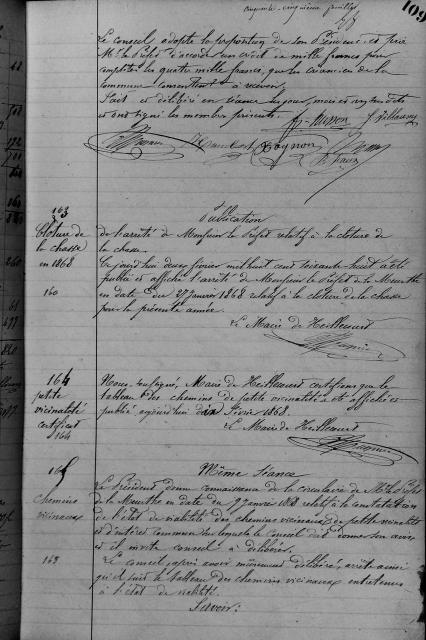 Cinquante cinquième feuillet
109
Le conseil adopte la proposition de son Président et prie
Mr le Préfet d'accorder un crédit de mille francs pour
compléter les quatre mille francs, que les créanciers de la
commune consentent à recevoir.
Fait et délibéré en séance les jour, mois et an susdits
et ont signé les membres présents.
163
Publication
Clôture de
la chasse
en 1868
160
de l'arrêté de Monsieur le Préfet relatif à la clôture de
la chasse.
Ce jourd'hui deux février mil huit cent soixante huit a été
publié et affiché l'arrêté de Monsieur le Préfet de la Meurthe
en date du 27 Janvier 1868 relatif à la clôture de la chasse
pour la présente année.
Le Maire de Heillecourt
164
petite
vicinalité
certificat
164
Nous soussigné, Maire de Heillecourt certifions que le
tableau des chemins de petite vicinalité a été affiché et
publié aujourd'hui dix février 1868.
Le Maire de Heillecourt
165
Même séance
Chemins
vicinaux
163
Le Président donne connaissance de la circulaire de Mr le Préfet
de la Meurthe en date du Janvier 1868 relatif à la constatation
de l'état de viabilité des chemins vicinaux de petite vicinalité
et d'intérêt commun sur lesquels le Conseil doit donner son avis
et il invite conseil à délibérer.
Le conseil après avoir mûrement délibéré, arrête ainsi
qu'il suit le tableau des chemins vicinaux entretenus
à l'état de viabilité
Savoir: